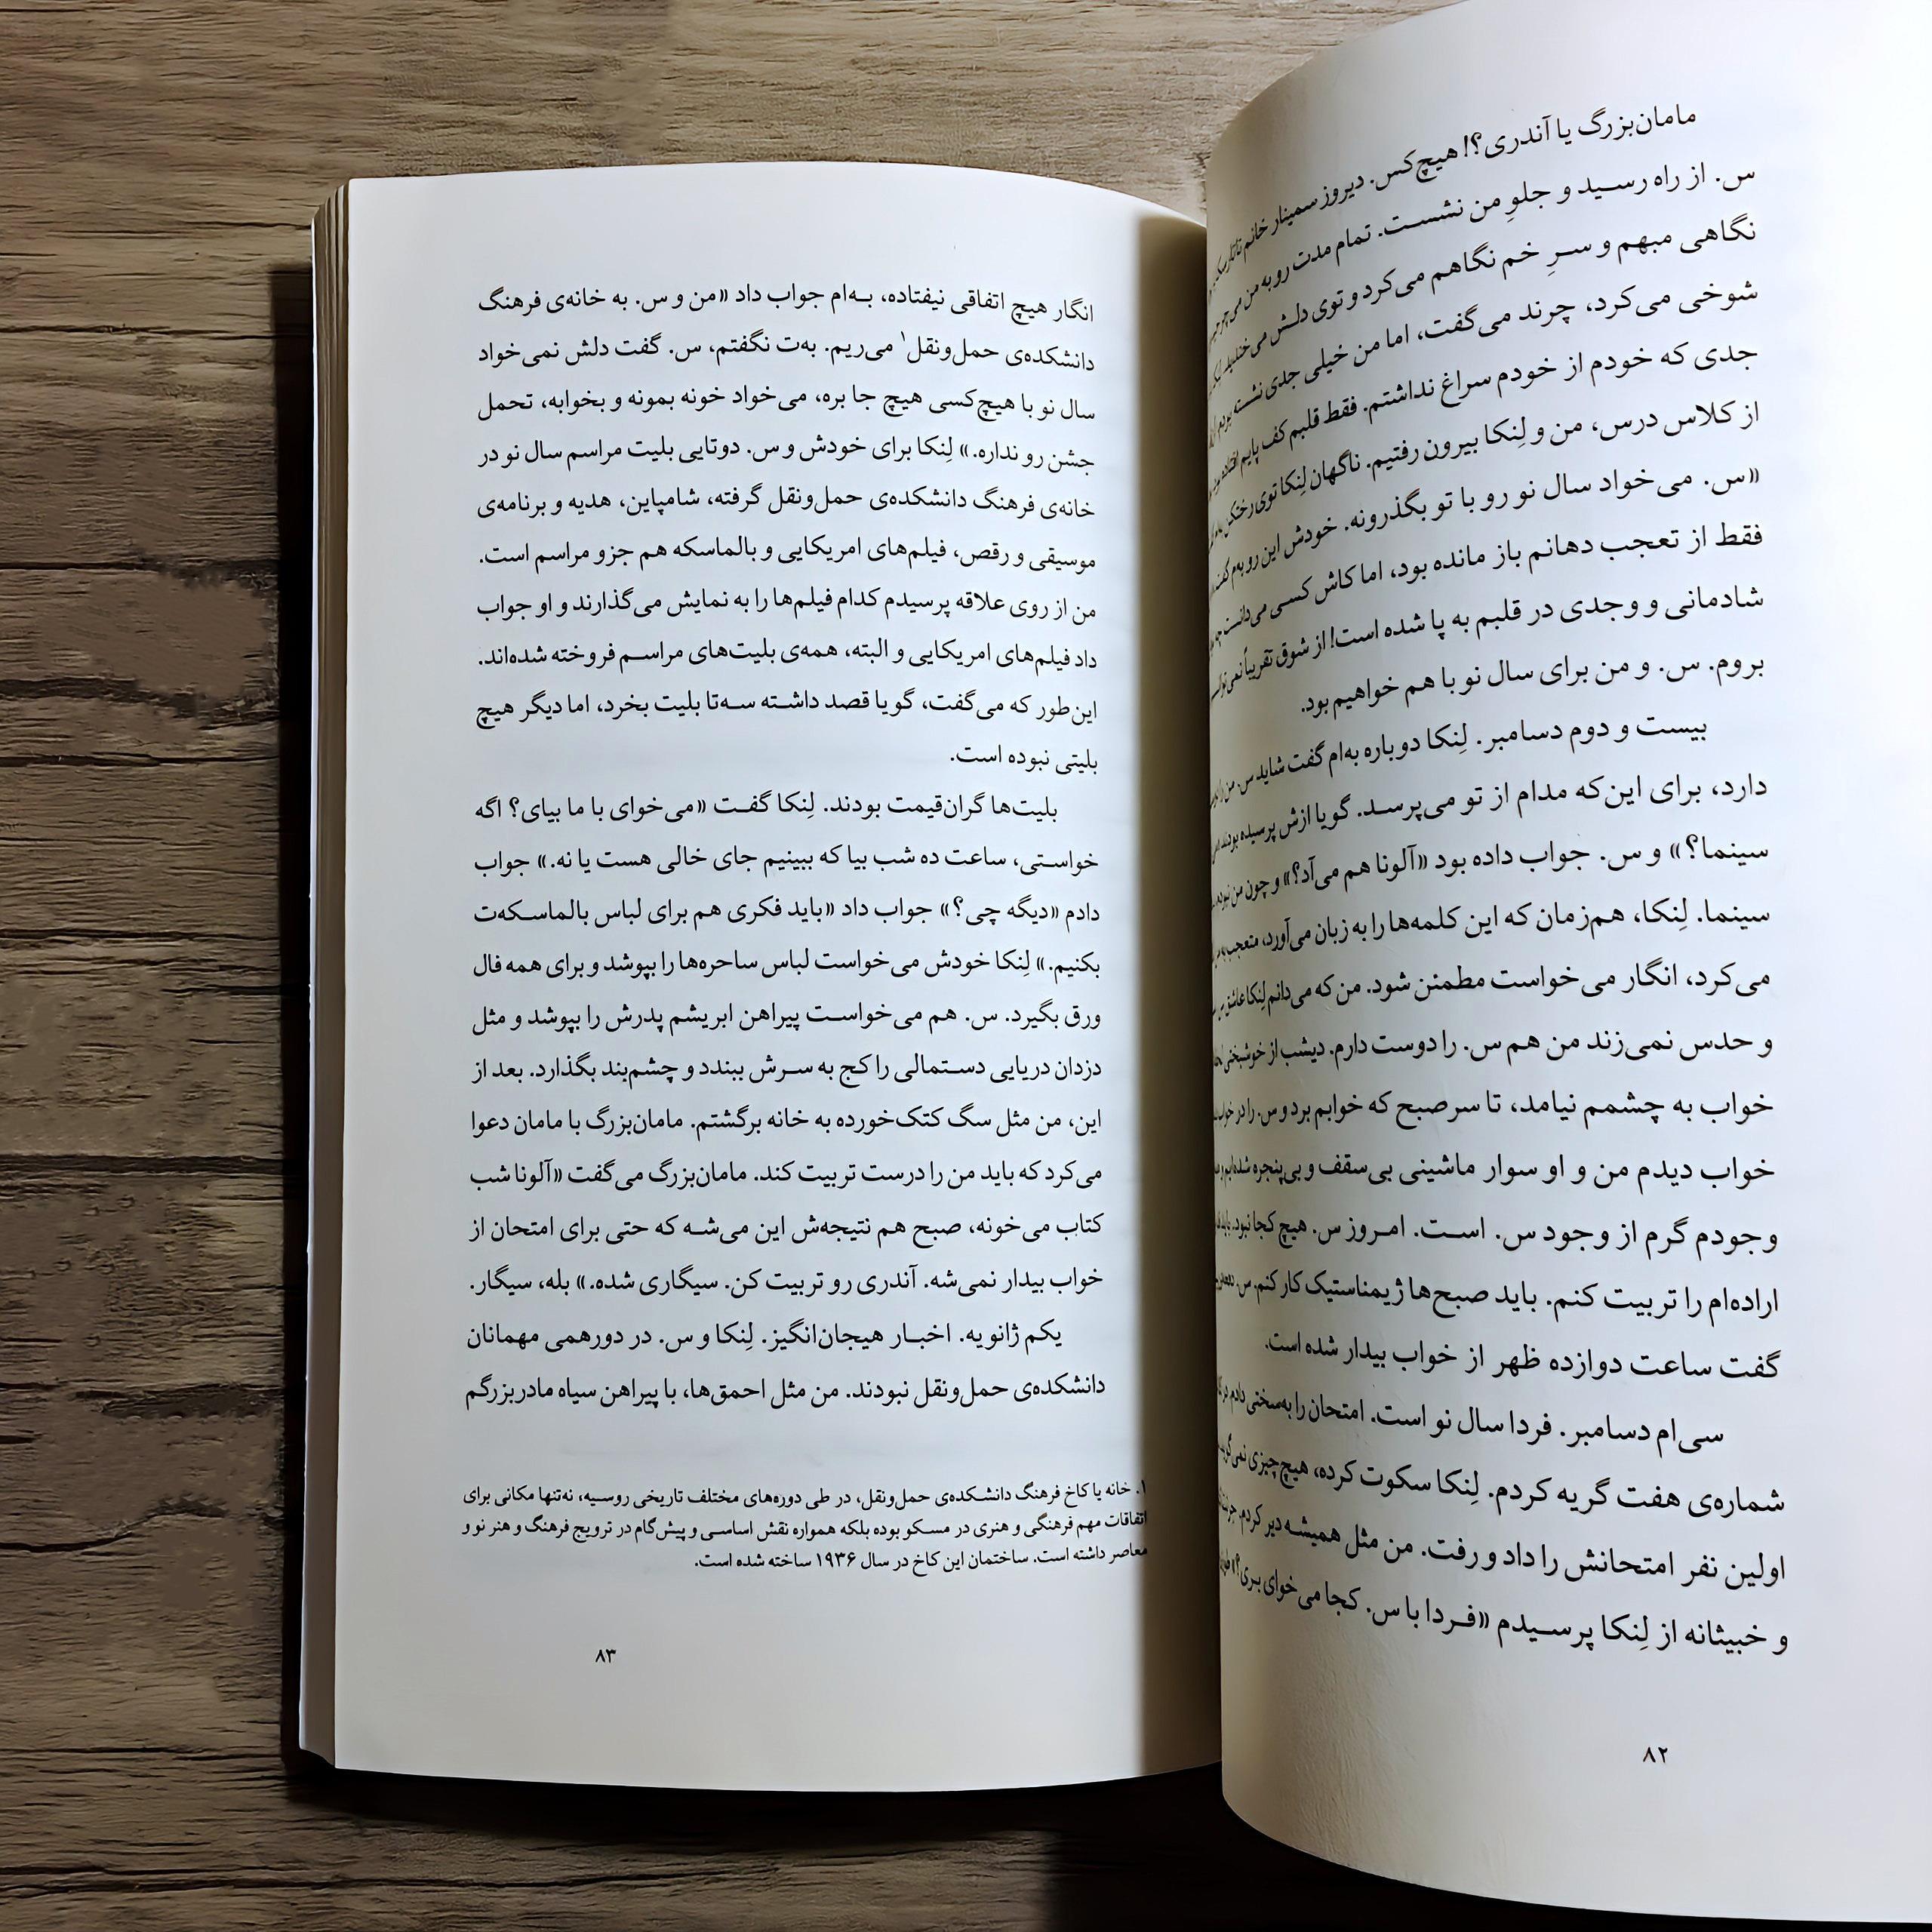 مامان‌بزرگ یا آندری؟! هیچ‌کس. دیروز سمینار خانم
س. از راه رسید و جلوِ من نشست. تمام مدت رو به من
نگاهی مبهم و سرِ خم نگاهم می‌کرد و توی دلش می‌خندید.
شوخی می‌کرد، چرند می‌گفت، اما من خیلی جدی نشسته بودم
جدی که خودم از خودم سراغ نداشتم. فقط قلبم کف پایم افتاده
از کلاس درس، من و لِنکا بیرون رفتیم. ناگهان لِنکا توی رختکن
«س. می‌خواد سال نو رو با تو بگذرونه. خودش این رو بهم گفت.
فقط از تعجب دهانم باز مانده بود، اما کاش کسی می‌دانست چه
شادمانی و وجدی در قلبم به پا شده است! از شوق تقریباً نمی‌توانستم
بروم. س. و من برای سال نو با هم خواهیم بود.
بیست و دوم دسامبر. لِنکا دوباره به‌ام گفت شاید س. من را
دارد، برای این‌که مدام از تو می‌پرسد. گویا ازش پرسیده بودند
سینما؟» و س. جواب داده بود «آلونا هم می‌آد؟» و چون من نبودم،
سینما. لِنکا، هم‌زمان که این کلمه‌ها را به زبان می‌آورد، متعجب
می‌کرد، انگار می‌خواست مطمئن شود. من که می‌دانم لِنکا عاشق
و حدس نمی‌زند من هم س. را دوست دارم. دیشب از خوشبختی
خواب به چشمم نیامد، تا سر صبح که خوابم برد و س. را در خواب
خواب دیدم من و او سوار ماشینی بی‌سقف و بی‌پنجره شده‌ایم و
وجودم گرم از وجود س. است. امروز س. هیچ کجا نبود. باید
اراده‌ام را تربیت کنم. باید صبح‌ها ژیمناستیک کار کنم. س.
گفت ساعت دوازده ظهر از خواب بیدار شده است.
سی‌ام دسامبر. فردا سال نو است. امتحان را به‌سختی دادم
شماره‌ی هفت گریه کردم. لِنکا سکوت کرده، هیچ‌چیزی نمی‌گوید.
اولین نفر امتحانش را داد و رفت. من مثل همیشه دیر کردم.
و خبیثانه از لِنکا پرسیدم «فردا با س. کجا می‌خوای بری؟»
۸۲
انگار هیچ اتفاقی نیفتاده، به‌ام جواب داد «من و س. به خانه‌ی فرهنگ
دانشکده‌ی حمل‌ونقل۱ می‌ریم. به‌ت نگفتم، س. گفت دلش نمی‌خواد
سال نو با هیچ‌کسی هیچ جا بره، می‌خواد خونه بمونه و بخوابه، تحمل
جشن رو نداره.» لِنکا برای خودش و س. دوتایی بلیت مراسم سال نو در
خانه‌ی فرهنگ دانشکده‌ی حمل‌ونقل گرفته، شامپاین، هدیه و برنامه‌ی
موسیقی و رقص، فیلم‌های امریکایی و بالماسکه هم جزو مراسم است.
من از روی علاقه پرسیدم کدام فیلم‌ها را به نمایش می‌گذارند و او جواب
داد فیلم‌های امریکایی و البته، همه‌ی بلیت‌های مراسم فروخته شده‌اند.
این‌طور که می‌گفت، گویا قصد داشته سه‌تا بلیت بخرد، اما دیگر هیچ
بلیتی نبوده است.
بلیت‌ها گران‌قیمت بودند. لِنکا گفت «می‌خوای با ما بیای؟ اگه
خواستی، ساعت ده شب بیا که ببینیم جای خالی هست یا نه.» جواب
دادم «دیگه چی؟» جواب داد «باید فکری هم برای لباس بالماسکه‌ت
بکنیم.» لِنکا خودش می‌خواست لباس ساحره‌ها را بپوشد و برای همه فال
ورق بگیرد. س. هم می‌خواست پیراهن ابریشم پدرش را بپوشد و مثل
دزدان دریایی دستمالی را کج به سرش ببندد و چشم‌بند بگذارد. بعد از
این، من مثل سگ کتک‌خورده به خانه برگشتم. مامان‌بزرگ با مامان دعوا
می‌کرد که باید من را درست تربیت کند. مامان‌بزرگ می‌گفت «آلونا شب
کتاب می‌خونه، صبح هم نتیجه‌ش این می‌شه که حتی برای امتحان از
خواب بیدار نمی‌شه. آندری رو تربیت کن. سیگاری شده.» بله، سیگار.
یکم ژانویه. اخبار هیجان‌انگیز. لِنکا و س. در دورهمی مهمانان
دانشکده‌ی حمل‌ونقل نبودند. من مثل احمق‌ها، با پیراهن سیاه مادربزرگم
۱. خانه یا کاخ فرهنگ دانشکده‌ی حمل‌ونقل، در طی دوره‌های مختلف تاریخی روسیه، نه‌تنها مکانی برای
اتفاقات مهم فرهنگی و هنری در مسکو بوده بلکه همواره نقش اساسی و پیش‌گام در ترویج فرهنگ و هنر نو و
معاصر داشته است. ساختمان این کاخ در سال ۱۹۳۶ ساخته شده است.
۸۳